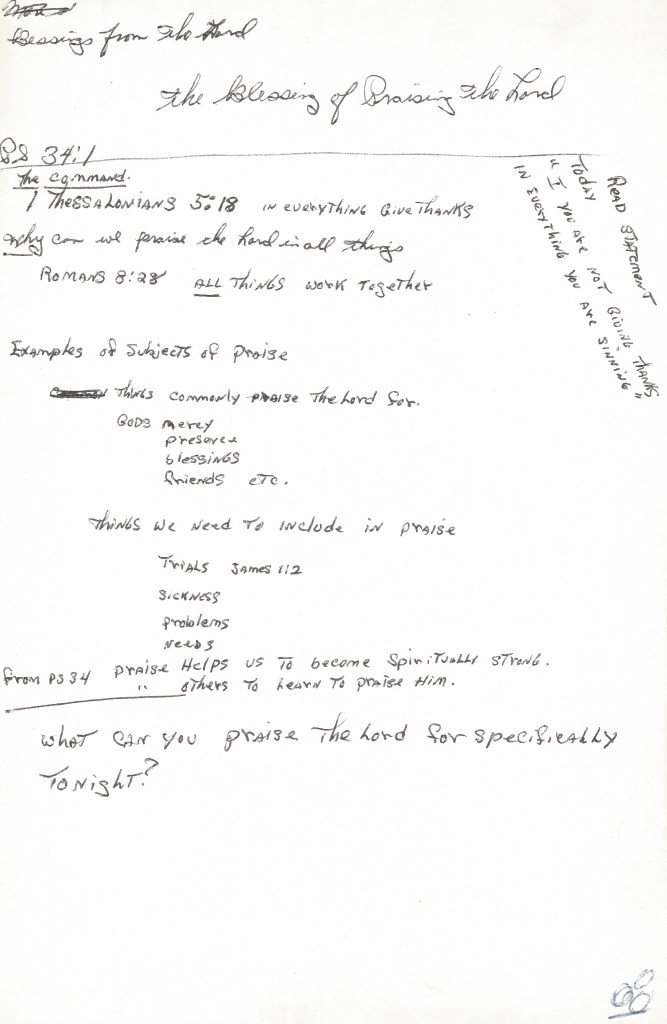 Blessings from the Lord
The Blessing of Praising the Lord
PS 34:1
The command.
1 Thessalonians 5:18 IN EVERYTHING GIVE THANKS
Why can we praise the Lord in all things
ROMANS 8:28 ALL THINGS WORK TOGETHER
READ STATEMENT
TODAY
" I YOU ARE NOT GIVING THANKS
IN EVERYTHING YOU ARE SINNING"
Examples of Subjects of Praise
Things commonly praise The Lord for.
GODS mercy
presence
blessings
friends etc.
Things we need to include in praise
Trials James 1:2
sickness
problems
needs
from PS 34 praise Helps us to become Spiritually strong.
" others to learn to praise Him.
What can you praise The Lord for specifically
Tonight?